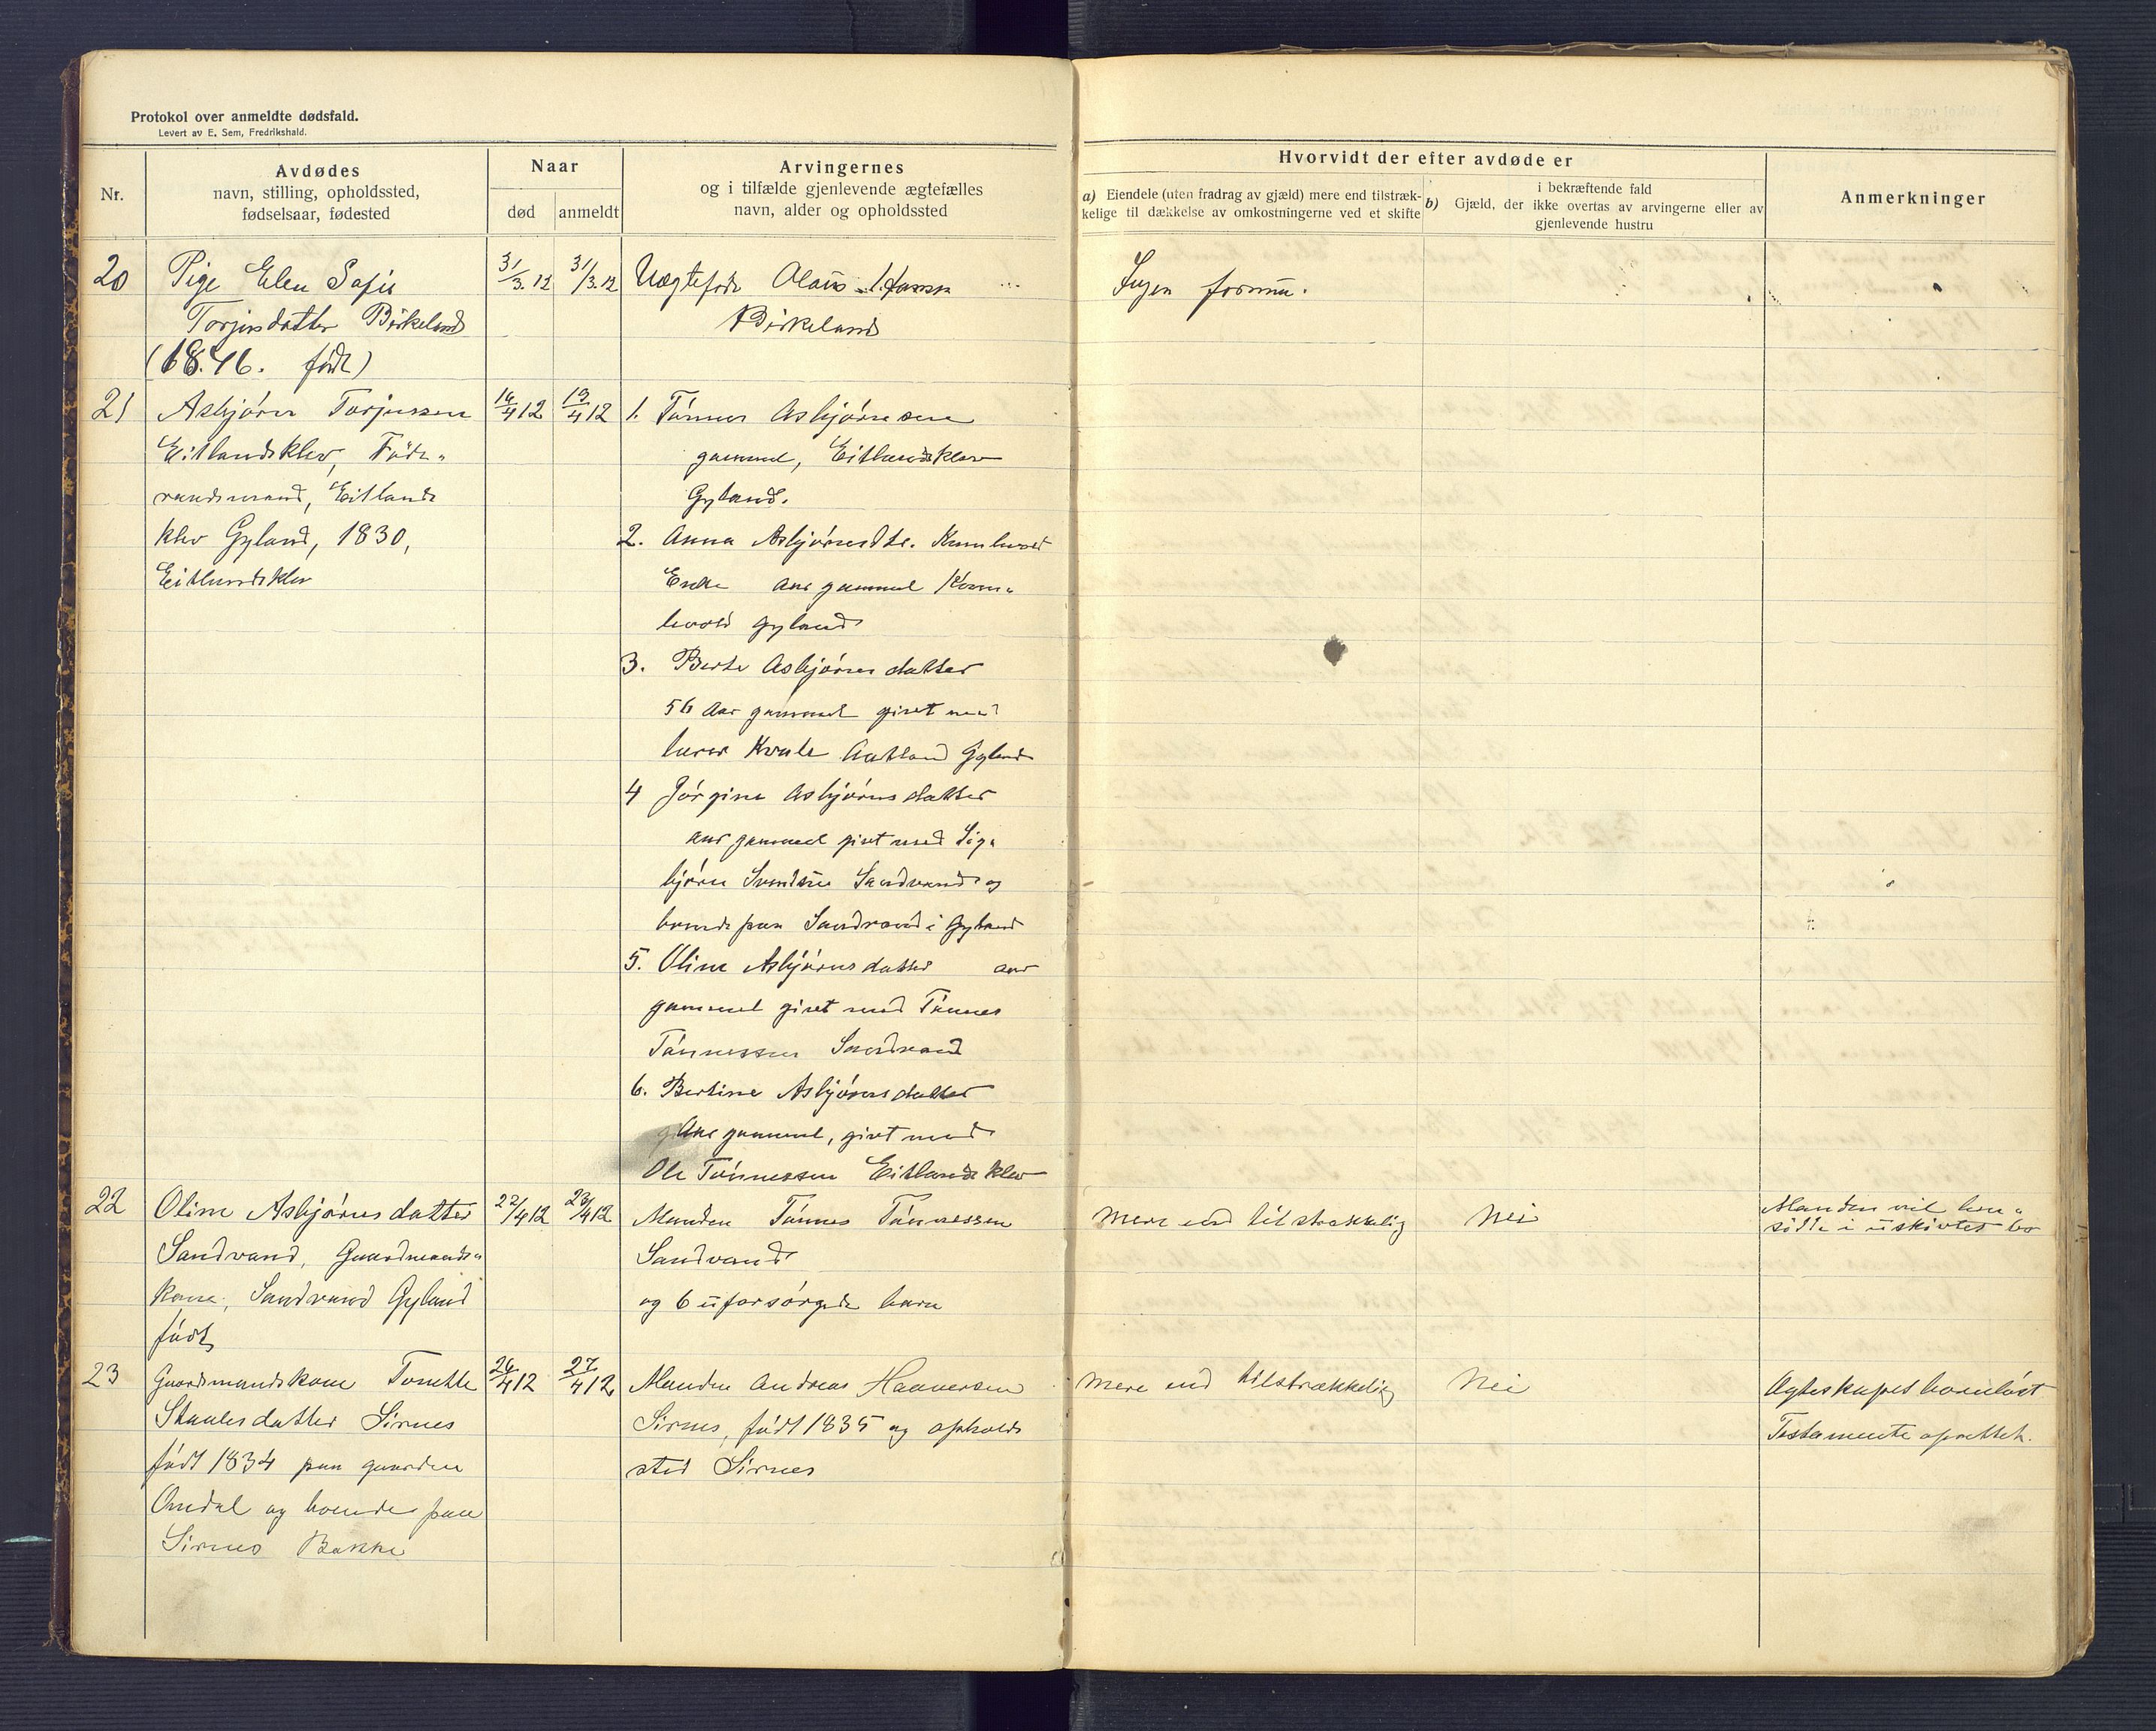 Protokol over anmeldte dødsfald.
Levert av E. Sem, Fredrikshald.
Nr.
Avdødes
navn, stilling, opholdssted,
fødselsaar, fødested
Naar
død
anmeldt
Arvingernes
og i tilfælde gjenlevende ægtefælles
navn, alder og opholdssted
Hvorvidt der efter avdøde er
a) Eiendele (uten fradrag av gjæld) mere end tilstræk-
kelige til dækkelse av omkostningerne ved et skifte
i bekræftende fald
b) Gjæld, der ikke overtas av arvingerne eller av
gjenlevende hustru
Anmerkninger
20
Pige Elen Sofie
Torjusdatter Birkeland
(1846. født)
31/3.12
31/3.12
Uægtefødt Olaus Hansen
Birkeland
Ingen formue.
21
Asbjørn Torjussen
Eitlandsklev, Føde-
raadsmand, Eitlands
klev Gyland, 1830,
Eitlandsklev
16/4 12
19/4 12
1. Tønnes Asbjørnsen
gammel, Eitlandsklev
Gyland.
2. Anna Asbjørnsdtr. Kumlevold
Enke aar gammel Kom-
levold Gyland
3. Berte Asbjørnsdatter
56 Aar gammel givt med
Kvale Aatland Gyland
4 Jørgine Asbjørnsdatter
aar gammel givt med Sig-
bjørn Svendsen Sandvand og
boende paa Sandvand i Gyland
5. Oline Asbjørnsdatter aar
gammel givt med Tønnes
Tønnessen Sandvand
6. Bertine Asbjørnsdatter
Aar gammel, givt med
Ole Tønnessen Eitlandsklev
22
Oline Asbjørnsdatter
Sandvand, Gaardmands-
kone, Sandvand Gyland
født
22/4 12
23/4 12
Manden Tønnes Tønnessen
Sandvand
og 6 uforsørgede barn
mere end tilstrækkelig
Nei
Manden vil hen-
sidde i uskiftet bo
23
Gaardmandskone Tonette
Staalesdatter Sirnes
født 1834 paa gaarden
Omdal og boende paa
Sirnes Bakke
26/4 12
27/4 12
Manden Andreas Haaversen
Sirnes, født 1835 og opholds
sted Sirnes
mere end tilstrækkelig
Nei
Ægteskapet barnløst
Testamente oprettet.